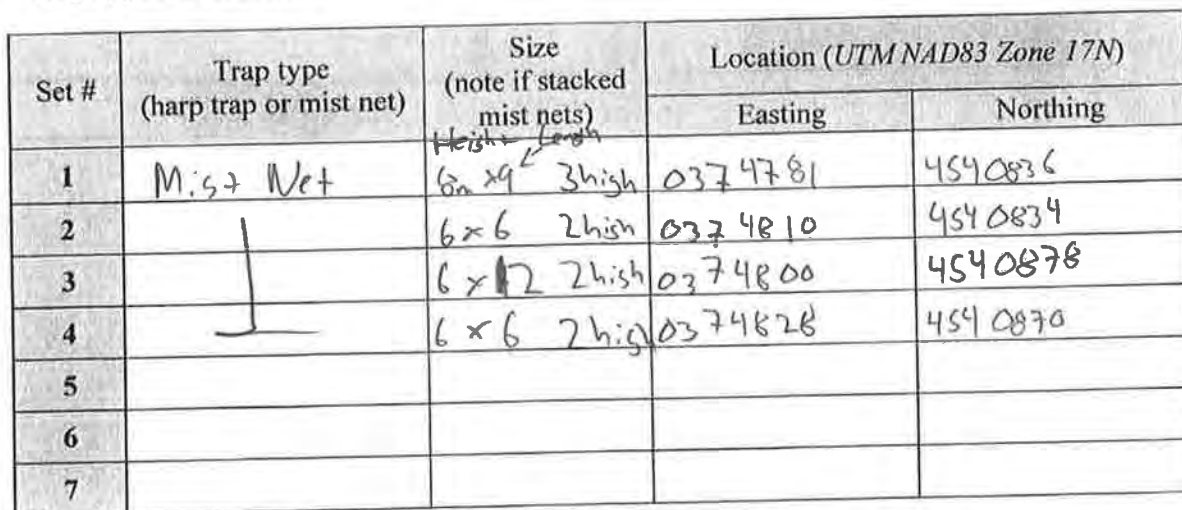 Set # Trap type (harp trap or mist net) Size (note if stacked mist nets) Location (UTM NAD83 Zone 17N)
Easting Northing
Height Length
1 Mist Net 6m x9 3high 0374781 4540836
2 6x6 2high 0374810 4540834
3 6x12 2high 0374800 4540878
4 6x6 2high 0374828 4540870
5
6
7